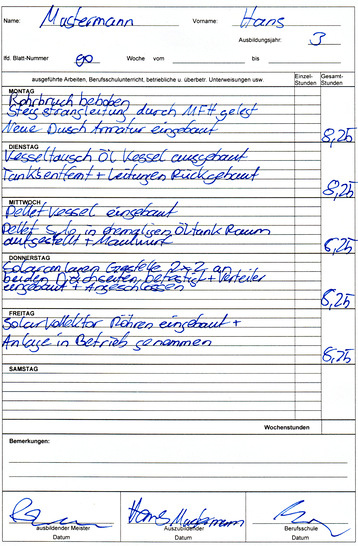 Name: Mustermann Vorname: Hans
Ausbildungsjahr: 3
lfd. Blatt-Nummer 90 Woche vom bis
ausgeführte Arbeiten, Berufsschulunterricht, betriebliche u. überbetr. Unterweisungen usw. Einzel-Stunden Gesamt-Stunden
MONTAG
Rohrbruch behoben
Steigstrangleitung durch MFH gelegt
Neue Dusch Armatur eingebaut 8,25
DIENSTAG
Kesseltausch Öl Kessel ausgebaut
Tanks entfernt + Leitungen Rückgebaut 8,25
MITTWOCH
Pellet Kessel eingebaut
Pellet Silo in ehemaligen Öltank Raum
aufgestellt + Maulwurf 8,25
DONNERSTAG
Solaranlagen Gestelle 2x2 an
beiden Dachseiten befestigt + Verteiler
eingebaut + Angeschlossen 8,25
FREITAG
Solar Kollektor Röhren eingebaut +
Anlage in Betrieb genommen 8,25
SAMSTAG
Wochenstunden
Bemerkungen:
Hans Mustermann
ausbildender Meister Auszubildender Berufsschule
Datum Datum Datum